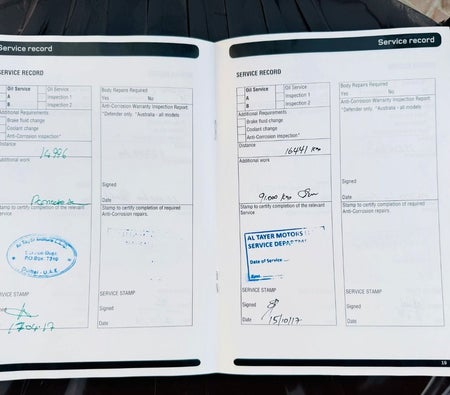 Service record
SERVICE RECORD
Oil Service
Oil Service
A
Inspection 1
B
Inspection 2
Additional Requirements
Brake fluid change
Coolant change
Anti-Corrosion inspection*
Distance
14,996
Additional work
Stamp to certify completion of the relevant
Service
AL TAYER MOTORS
P.O.Box: 7310
Dubai - U.A.E
SERVICE STAMP
Signed
Date
17/04/17
Body Repairs Required
Yes No
Anti-Corrosion Warranty Inspection Report:
*Defender only. *Australia - all models
Signed
Date
Stamp to certify completion of required
Anti-Corrosion repairs.
SERVICE STAMP
Signed
Date
Service record
SERVICE RECORD
Oil Service
Oil Service
A
Inspection 1
B
Inspection 2
Additional Requirements
Brake fluid change
Coolant change
Anti-Corrosion inspection*
Distance
16441 Km
Additional work
91,000 Km
Stamp to certify completion of the relevant
Service
AL TAYER MOTORS
SERVICE DEPARTMENT
Date of Service
SERVICE STAMP
Signed
Date 15/10/17
Body Repairs Required
Yes No
Anti-Corrosion Warranty Inspection Report:
*Defender only. *Australia - all models
Signed
Date
Stamp to certify completion of required
Anti-Corrosion repairs.
SERVICE STAMP
Signed
Date
19